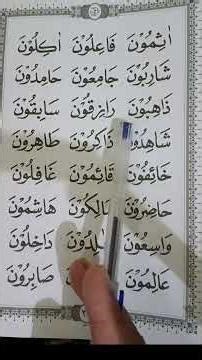 اٰثِمُوْنَ فَاعِلُوْنَ اٰكِلُوْنَ
شَارِبُوْنَ جَامِعُوْنَ حَامِدُوْنَ
ذَاهِبُوْنَ رَازِقُوْنَ سَابِقُوْنَ
شَاهِدُوْنَ ذَاكِرُوْنَ طَاهِرُوْنَ
خَائِفُوْنَ قَائِمُوْنَ غَافِلُوْنَ
حَاضِرُوْنَ مَالِكُوْنَ هَاشِمُوْنَ
وَاسِعُوْنَ دَاخِلُوْنَ
عَالِمُوْنَ صَابِرُوْنَ